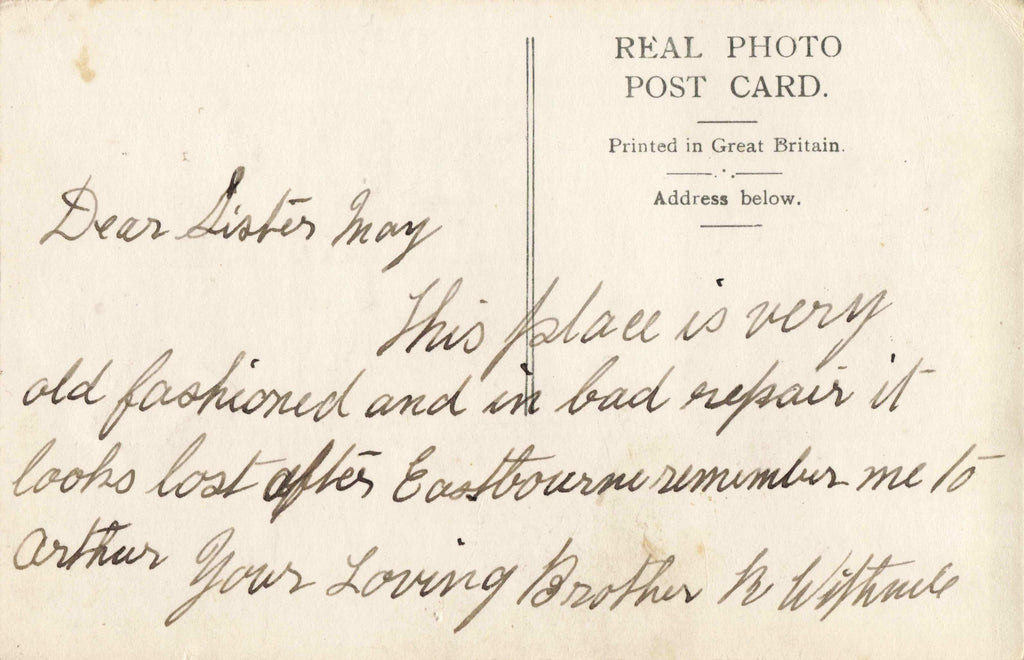 REAL PHOTO
POST CARD.
Printed in Great Britain.
Address below.
Dear Sister May
This place is very
old fashioned and in bad repair it
looks lost after Eastbourne remember me to
Arthur Your Loving Brother R